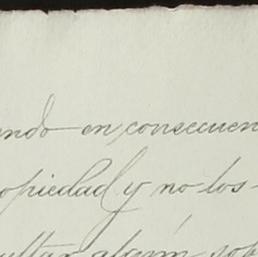 ando en consecuen
opiedad y no los
ultar algún sob